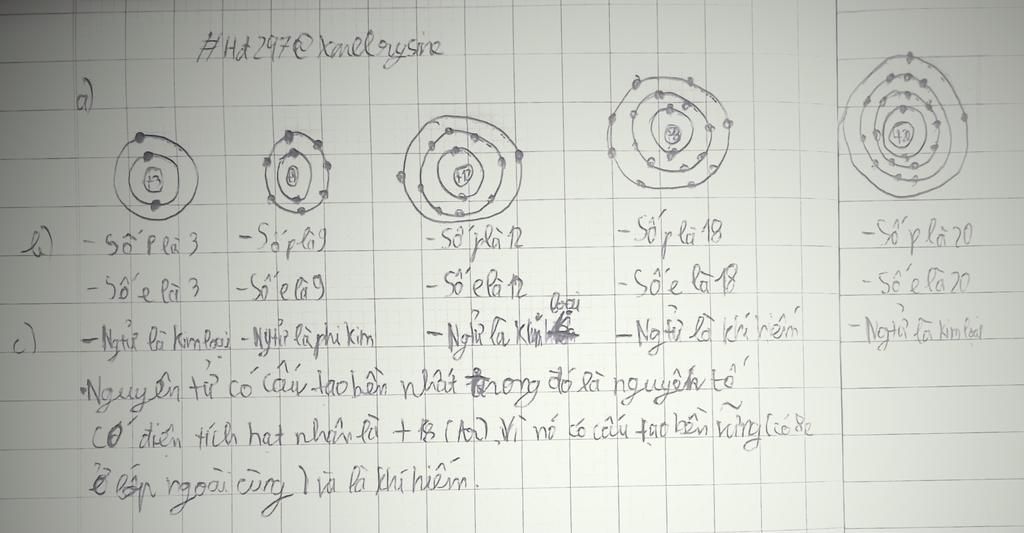 #Hd297@Xmelrysine
a)
+3 9 +12 +18 +20
b) - Số p là 3 - Số p là 9 - Số p là 12 - Số p là 18 - Số p là 20
- Số e là 3 - Số e là 9 - Số e là 12 - Số e là 18 - Số e là 20
loại
c) - Ngtử là kim loại - Ngtử là phi kim - Ngtử là kim - Ngtử là khí hiếm - Ngtử là kim loại
• Nguyên tử có cấu tạo bền nhất trong đó là nguyên tố
có điện tích hạt nhân là + 18 (Ar), Vì nó có cấu tạo bền vững (có 8e
ở lớp ngoài cùng) và là khí hiếm.